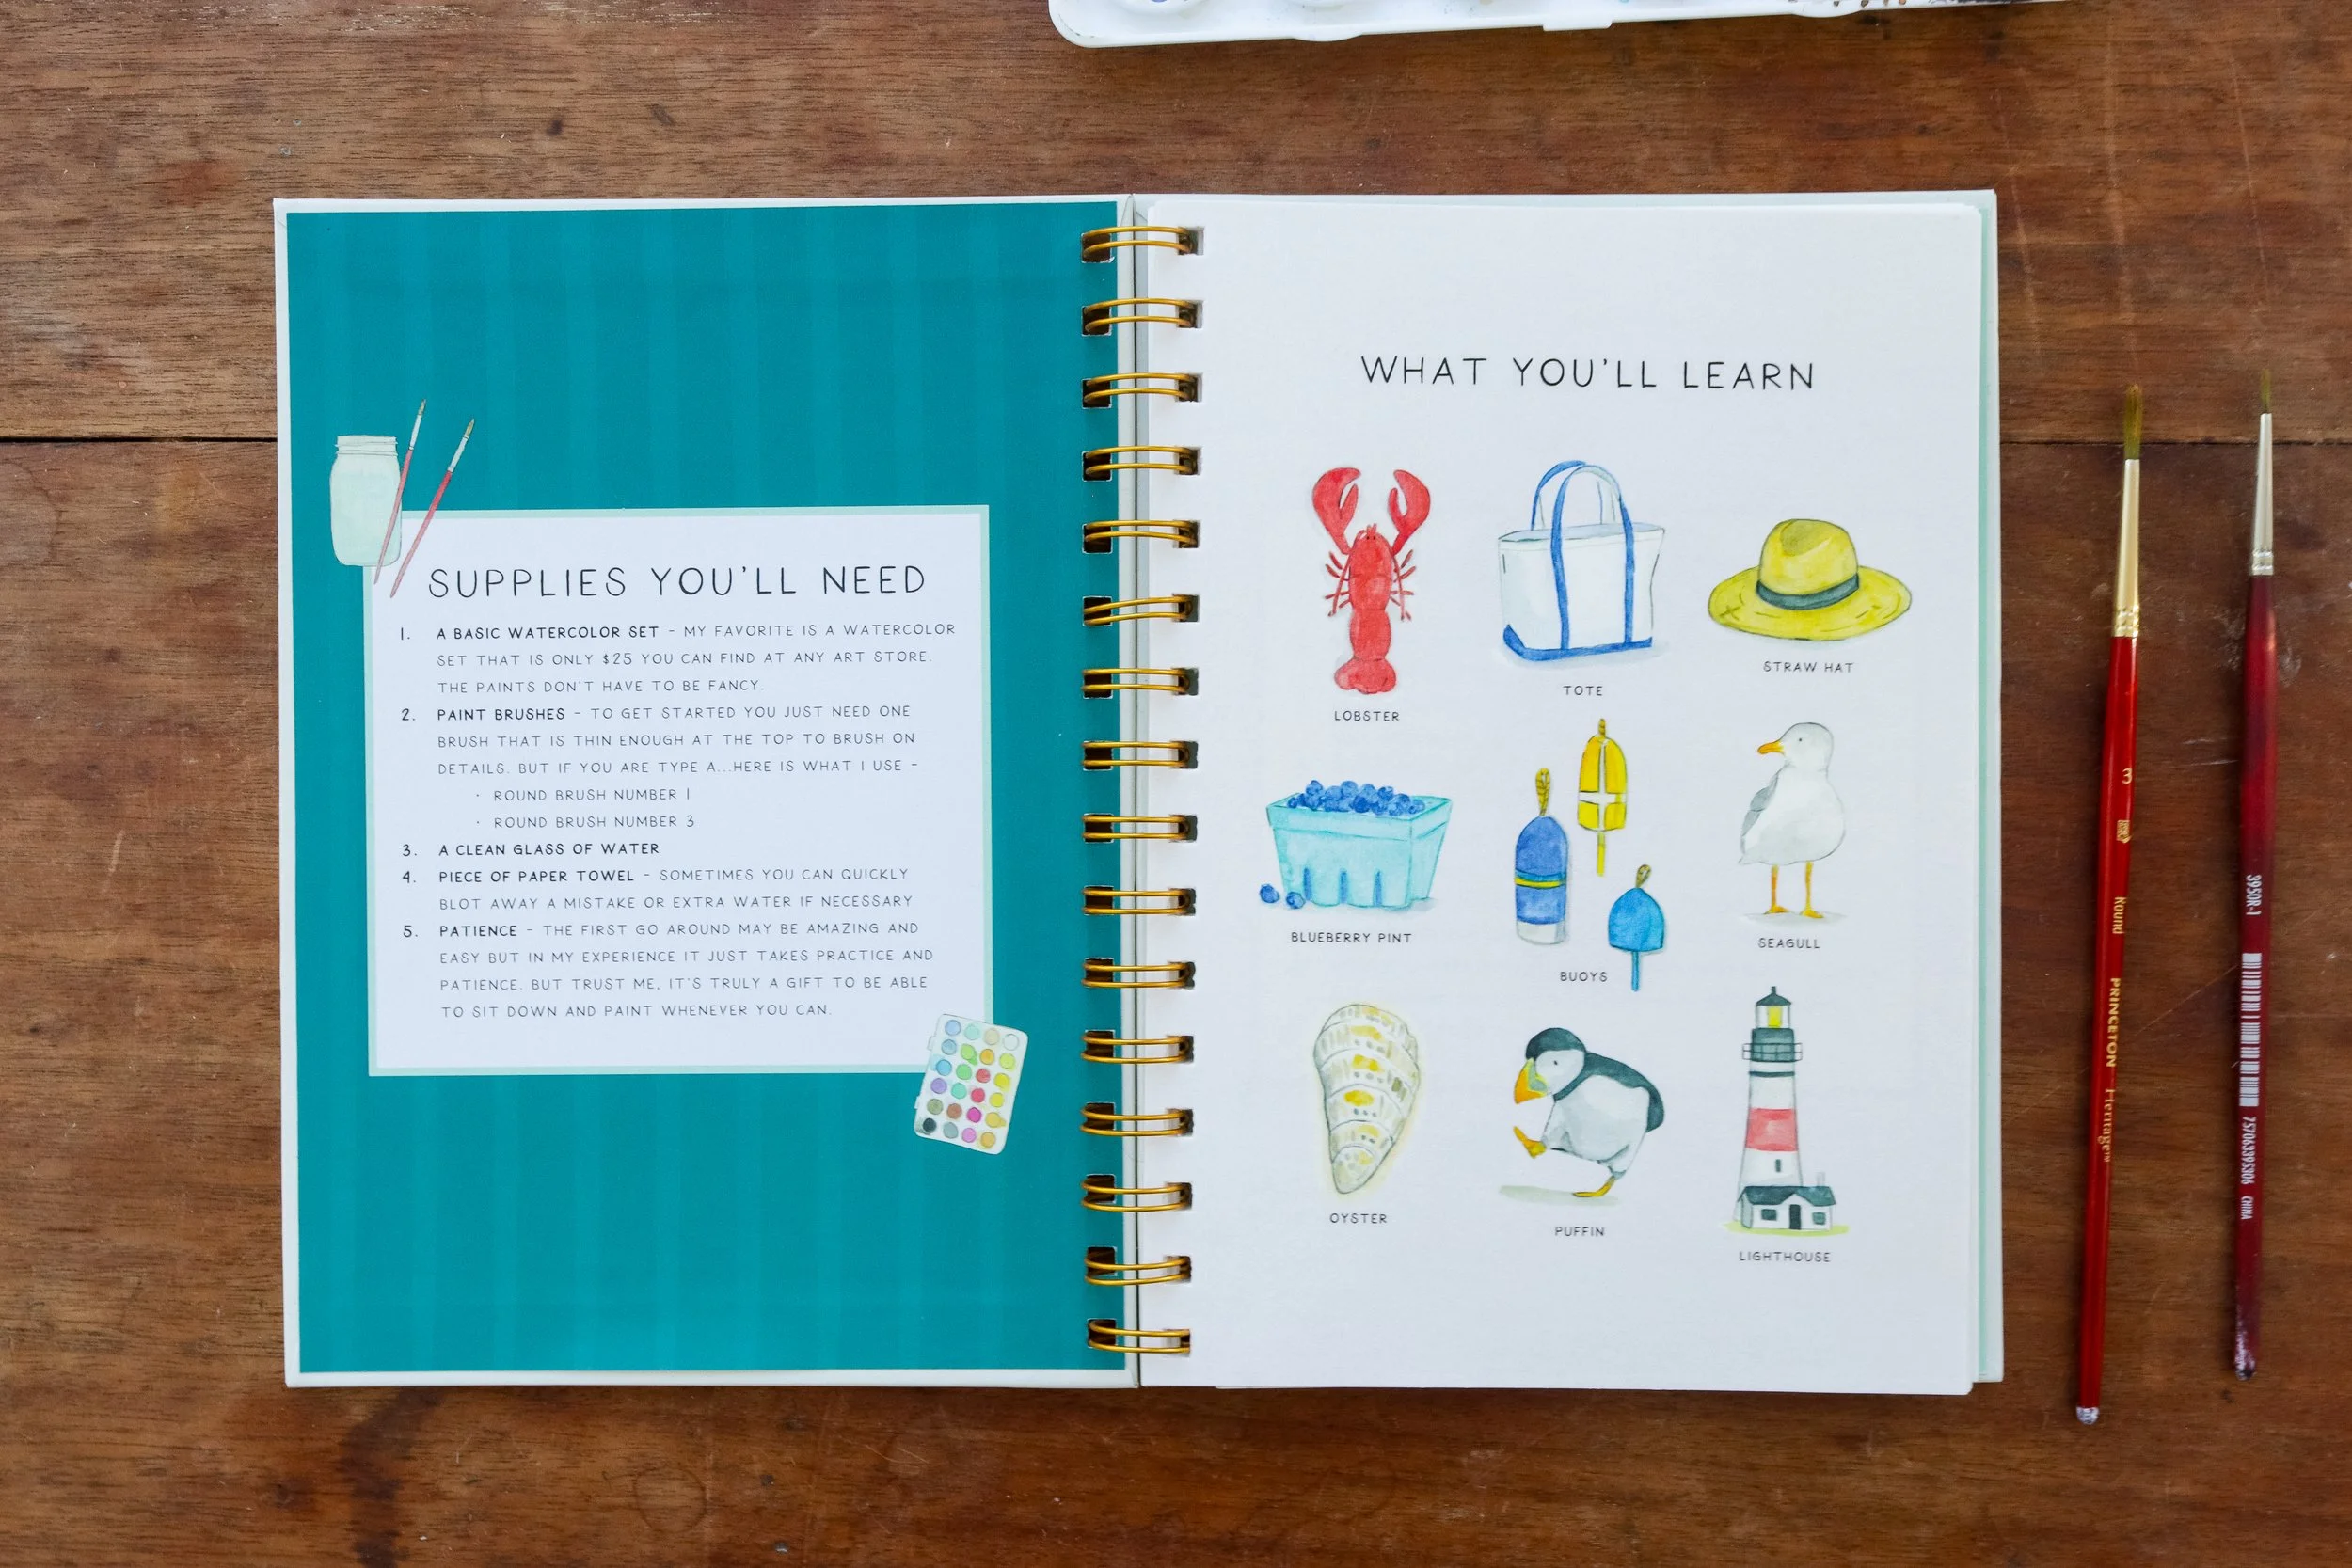 SUPPLIES YOU'LL NEED
1. A BASIC WATERCOLOR SET - MY FAVORITE IS A WATERCOLOR
SET THAT IS ONLY $25 YOU CAN FIND AT ANY ART STORE.
THE PAINTS DON'T HAVE TO BE FANCY.
2. PAINT BRUSHES - TO GET STARTED YOU JUST NEED ONE
BRUSH THAT IS THIN ENOUGH AT THE TOP TO BRUSH ON
DETAILS. BUT IF YOU ARE TYPE A...HERE IS WHAT I USE -
· ROUND BRUSH NUMBER 1
· ROUND BRUSH NUMBER 3
3. A CLEAN GLASS OF WATER
4. PIECE OF PAPER TOWEL - SOMETIMES YOU CAN QUICKLY
BLOT AWAY A MISTAKE OR EXTRA WATER IF NECESSARY
5. PATIENCE - THE FIRST GO AROUND MAY BE AMAZING AND
EASY BUT IN MY EXPERIENCE IT JUST TAKES PRACTICE AND
PATIENCE. BUT TRUST ME, IT'S TRULY A GIFT TO BE ABLE
TO SIT DOWN AND PAINT WHENEVER YOU CAN.
WHAT YOU'LL LEARN
LOBSTER
TOTE
STRAW HAT
BLUEBERRY PINT
BUOYS
SEAGULL
OYSTER
PUFFIN
LIGHTHOUSE
3 Round PRINCETON Heritage
3950R-1 757063395306 CHINA